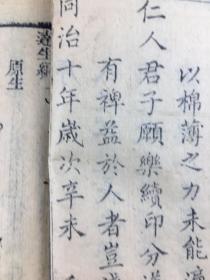 以棉薄之力未能
仁人君子願樂續印分
有裨益於人者豈
同治十年歲次辛未
原生